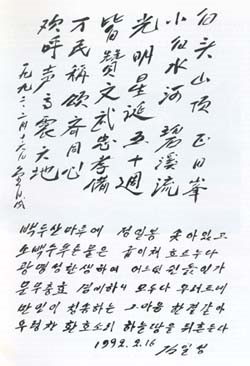 白头山顶正日峯
小白水河碧溪流
光明星诞五十週
皆贊文武忠孝備
万民称颂齐同心
欢呼声高震天地
一九九二.二月十六日 金日成
백두산마루에 정일봉 솟아있고
소백수푸른물은 굽이쳐 흐르누나
광명성탄생하여 어느덧 쉰돐인가
문무충효 겸비하니 모두다 우러르네
만민이 칭송하는 그마음 한결같아
우렁찬 환호소리 하늘땅을 뒤흔든다
1992.2.16 김일성